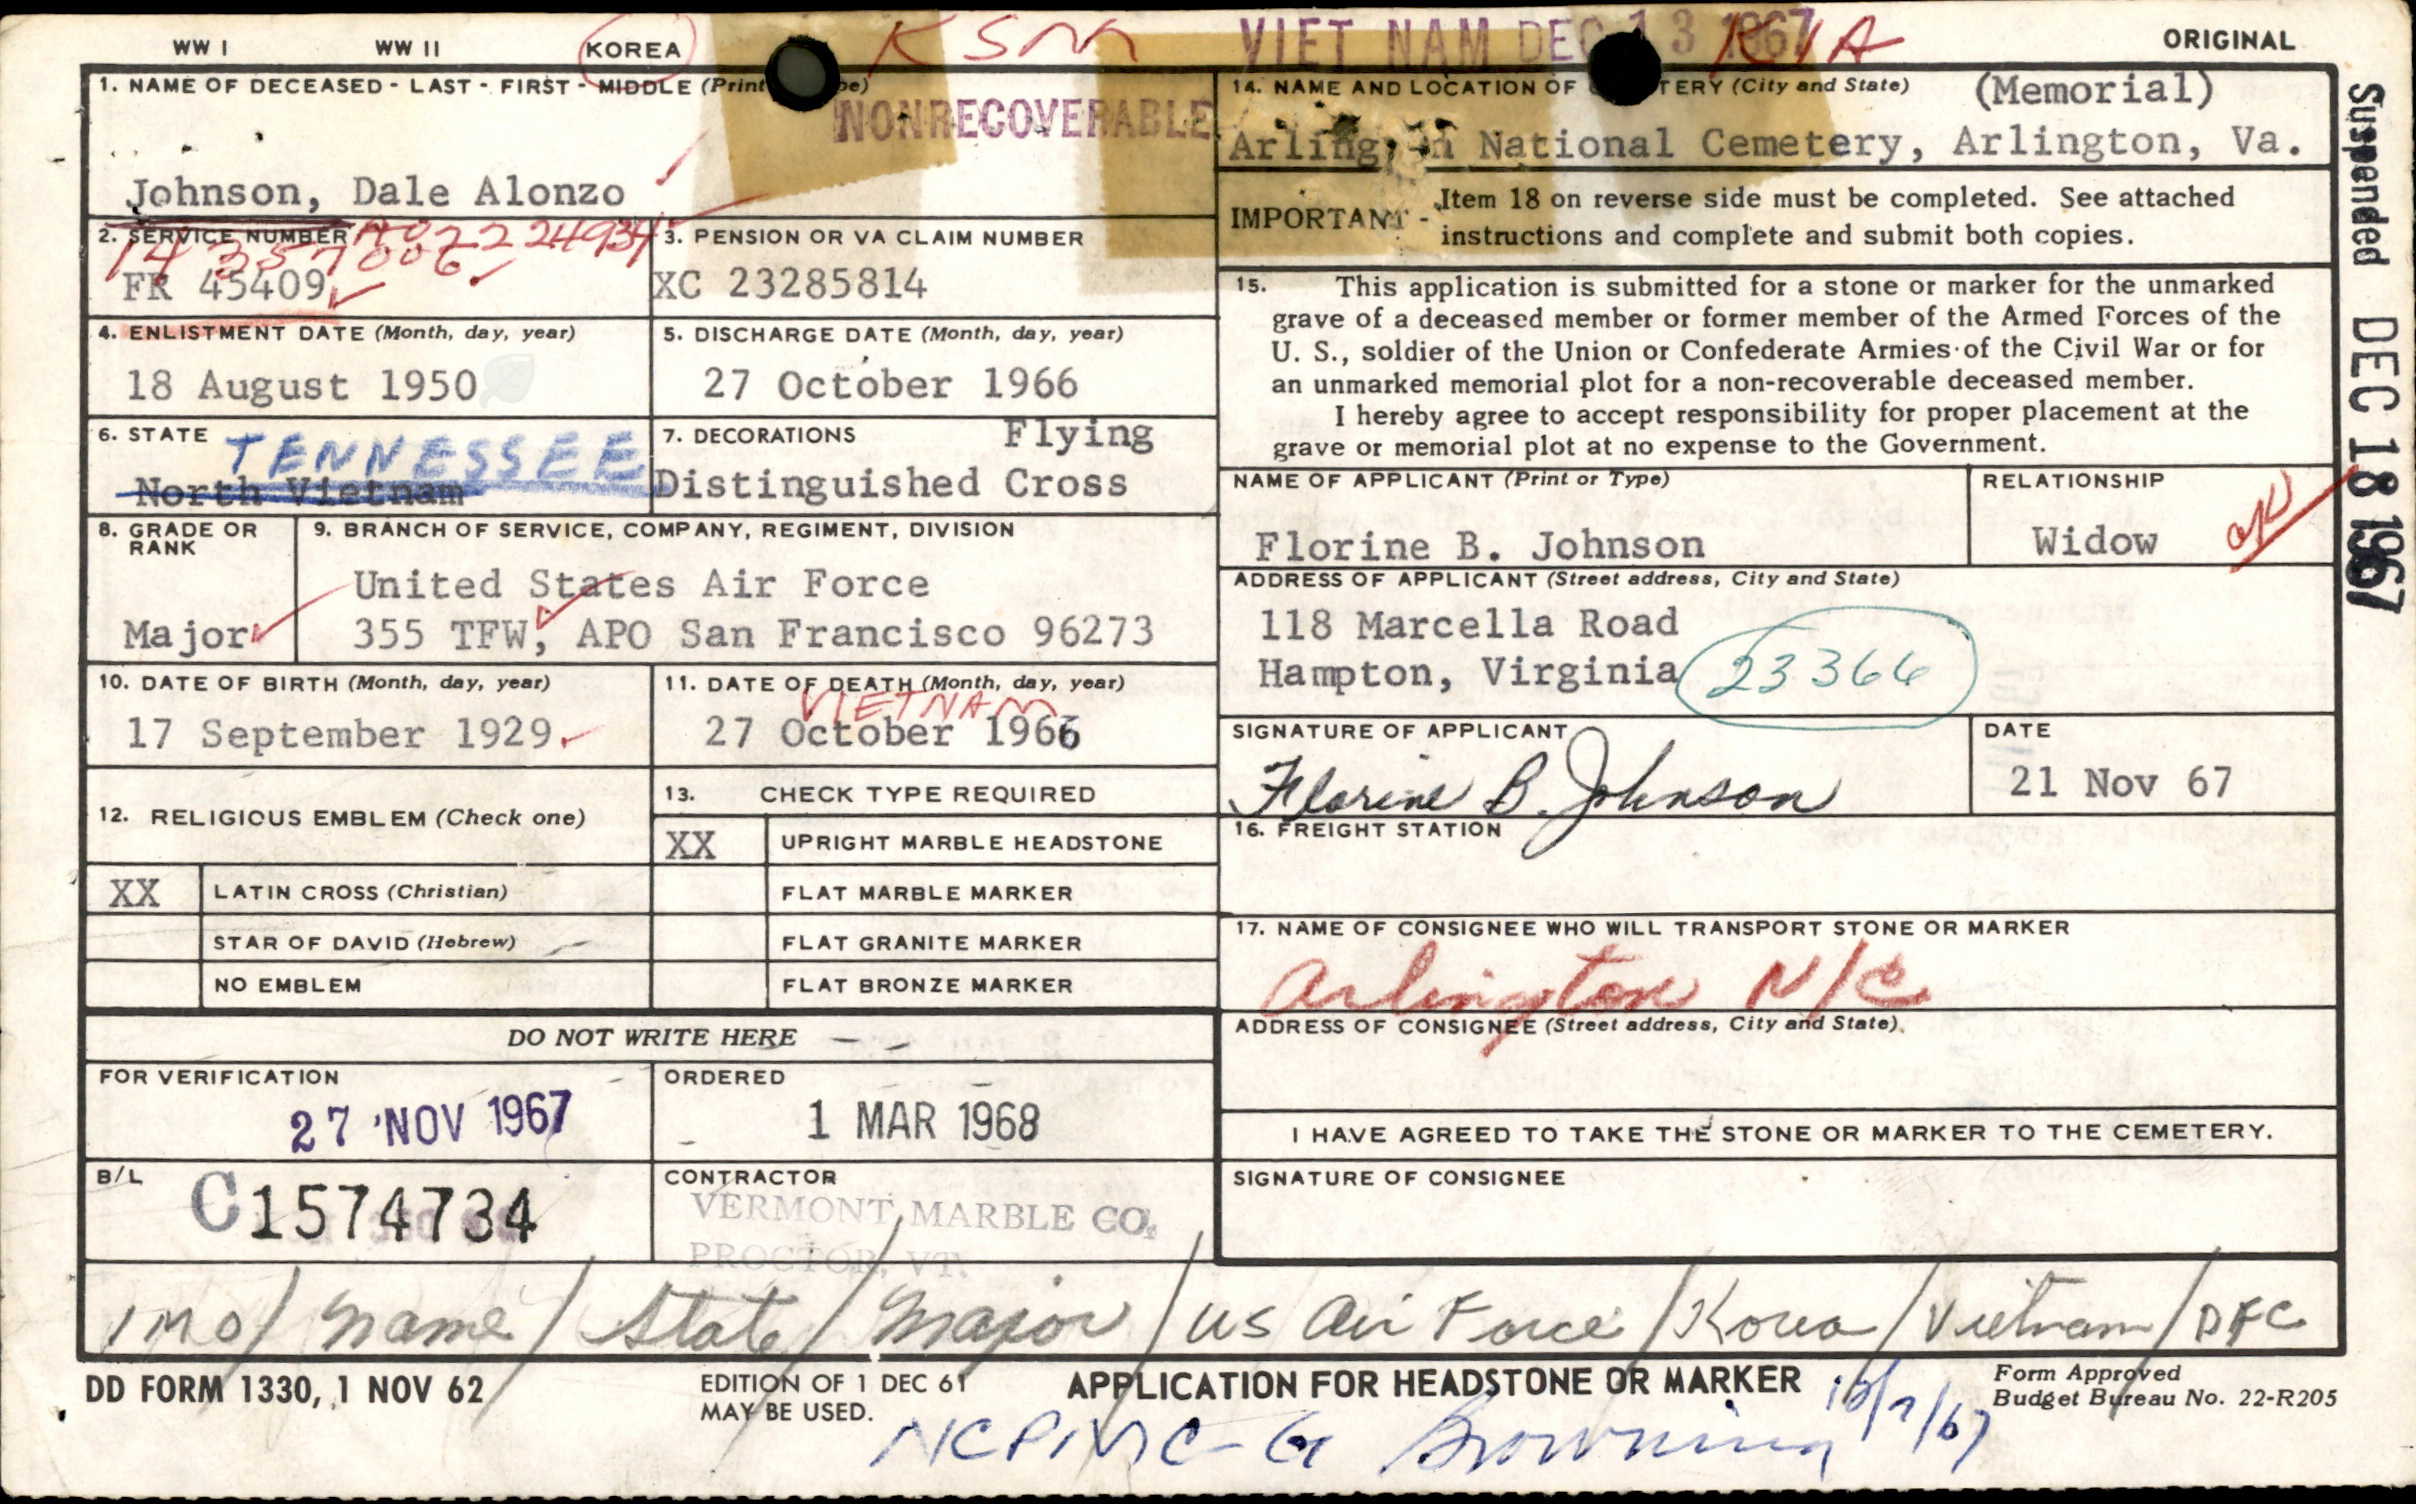 WW I WW II KOREA KSM VIET NAM DEC 13 1967 KIA ORIGINAL
1. NAME OF DECEASED - LAST - FIRST - MIDDLE (Print
NONRECOVERABLE
Johnson, Dale Alonzo
2. SERVICE NUMBER AO 2224934
14 357 006
FR 45409
3. PENSION OR VA CLAIM NUMBER
XC 23285814
4. ENLISTMENT DATE (Month, day, year)
18 August 1950
5. DISCHARGE DATE (Month, day, year)
27 October 1966
6. STATE TENNESSEE
North Vietnam
7. DECORATIONS Flying
Distinguished Cross
8. GRADE OR
RANK
Major
9. BRANCH OF SERVICE, COMPANY, REGIMENT, DIVISION
United States Air Force
355 TFW, APO San Francisco 96273
10. DATE OF BIRTH (Month, day, year)
17 September 1929
11. DATE OF DEATH (Month, day, year)
VIETNAM
27 October 1966
12. RELIGIOUS EMBLEM (Check one)
XX LATIN CROSS (Christian)
STAR OF DAVID (Hebrew)
NO EMBLEM
13. CHECK TYPE REQUIRED
XX UPRIGHT MARBLE HEADSTONE
FLAT MARBLE MARKER
FLAT GRANITE MARKER
FLAT BRONZE MARKER
DO NOT WRITE HERE
FOR VERIFICATION
27 NOV 1967
ORDERED
1 MAR 1968
B/L
C1574734
CONTRACTOR
VERMONT MARBLE CO.
PROCTOR, VT.
14. NAME AND LOCATION OF (City and State) (Memorial)
Arlington National Cemetery, Arlington, Va.
IMPORTANT - Item 18 on reverse side must be completed. See attached
instructions and complete and submit both copies.
15. This application is submitted for a stone or marker for the unmarked
grave of a deceased member or former member of the Armed Forces of the
U. S., soldier of the Union or Confederate Armies of the Civil War or for
an unmarked memorial plot for a non-recoverable deceased member.
I hereby agree to accept responsibility for proper placement at the
grave or memorial plot at no expense to the Government.
NAME OF APPLICANT (Print or Type)
Florine B. Johnson
RELATIONSHIP
Widow OK
ADDRESS OF APPLICANT (Street address, City and State)
118 Marcella Road
Hampton, Virginia 23366
SIGNATURE OF APPLICANT
Florine B. Johnson
DATE
21 Nov 67
16. FREIGHT STATION
17. NAME OF CONSIGNEE WHO WILL TRANSPORT STONE OR MARKER
Arlington N/C
ADDRESS OF CONSIGNEE (Street address, City and State)
I HAVE AGREED TO TAKE THE STONE OR MARKER TO THE CEMETERY.
SIGNATURE OF CONSIGNEE
Suspended DEC 18 1967
IMO/ Name/ State/ Major/ US Air Force/ Korea/ Vietnam/ DFC
DD FORM 1330, 1 NOV 62
EDITION OF 1 DEC 61
MAY BE USED.
APPLICATION FOR HEADSTONE OR MARKER
Form Approved
Budget Bureau No. 22-R205
NCPMC-G Browning